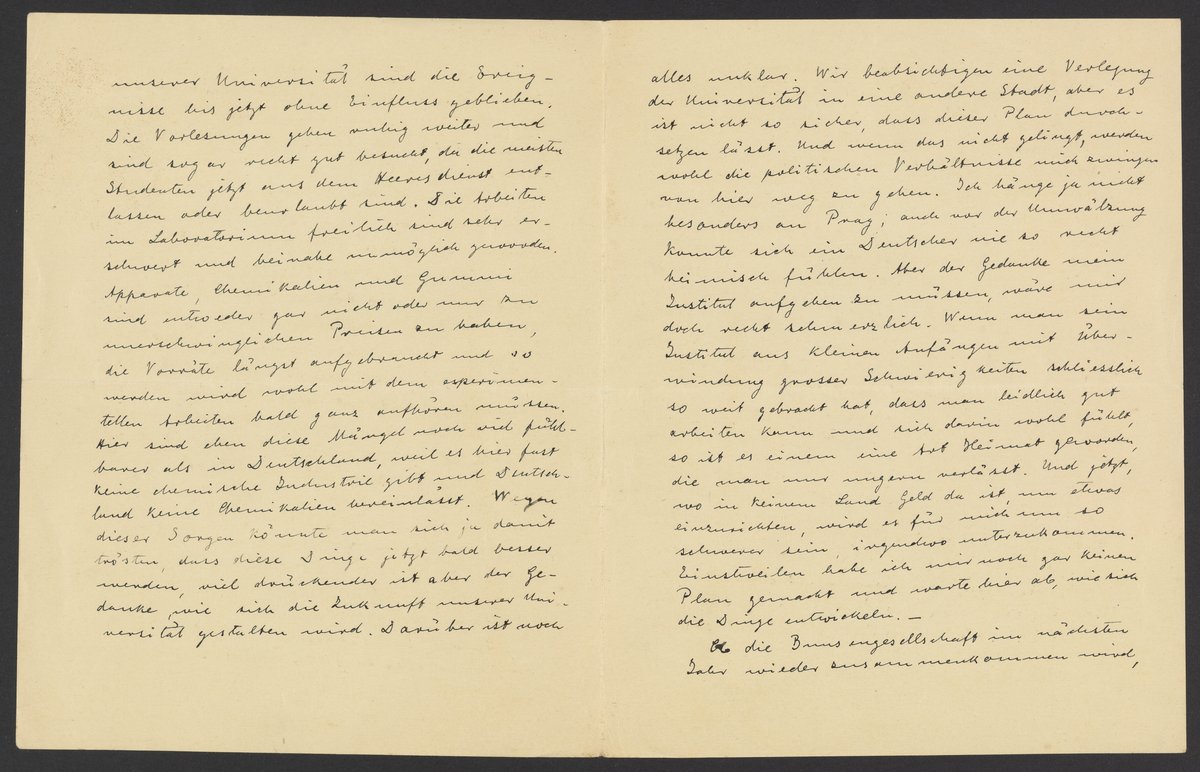 unserer Universität sind die Ereig-
nisse bis jetzt ohne Einfluss geblieben.
Die Vorlesungen gehen ruhig weiter und
sind sogar recht gut besucht, da die meisten
Studenten jetzt aus dem Heeresdienst ent-
lassen oder beurlaubt sind. Die Arbeiten
im Laboratorium freilich sind sehr er-
schwert und beinahe unmöglich geworden.
Apparate, Chemikalien und Gummi
sind entweder gar nicht oder nur zu
unerschwinglichen Preisen zu haben,
die Vorräte längst aufgebraucht und so
werden wird wohl mit dem experimen-
tellen Arbeiten bald ganz aufhören müssen.
Hier sind eben diese Mängel noch viel fühl-
barer als in Deutschland, weil es hier fast
keine chemische Industrie gibt und Deutsch-
land keine Chemikalien hereinlässt. Wegen
dieser Sorgen könnte man sich ja damit
trösten, dass diese Dinge jetzt bald besser
werden, viel drückender ist aber der Ge-
danke, wie sich die Zukunft unserer Uni-
versität gestalten wird. Darüber ist noch
alles unklar. Wir beabsichtigen eine Verlegung
der Universität in eine andere Stadt, aber es
ist nicht so sicher, dass dieser Plan durch-
setzen lässt. Und wenn das nicht gelingt, werden
wohl die politischen Verhältnisse mich zwingen
von hier weg zu gehen. Ich hänge ja nicht
besonders an Prag; auch vor der Umwälzung
konnte sich ein Deutscher nie so recht
heimisch fühlen. Aber der Gedanke mein
Institut aufgeben zu müssen, wäre mir
doch recht schmerzlich. Wenn man sein
Institut aus kleinen Anfängen mit Über-
windung grosser Schwierigkeiten schliesslich
so weit gebracht hat, dass man leidlich gut
arbeiten kann und sich darin wohl fühlt,
so ist es einem eine Art Heimat geworden,
die man nur ungern verlässt. Und jetzt,
wo in keinem Land Geld da ist, um etwas
einzurichten, wird es für mich um so
schwerer sein, irgendwo unterzukommen.
Einstweilen habe ich mir noch gar keinen
Plan gemacht und warte hier ab, wie sich
die Dinge entwickeln. —
Ob die Bunsengesellschaft im nächsten
Jahr wieder zusammenkommen wird,